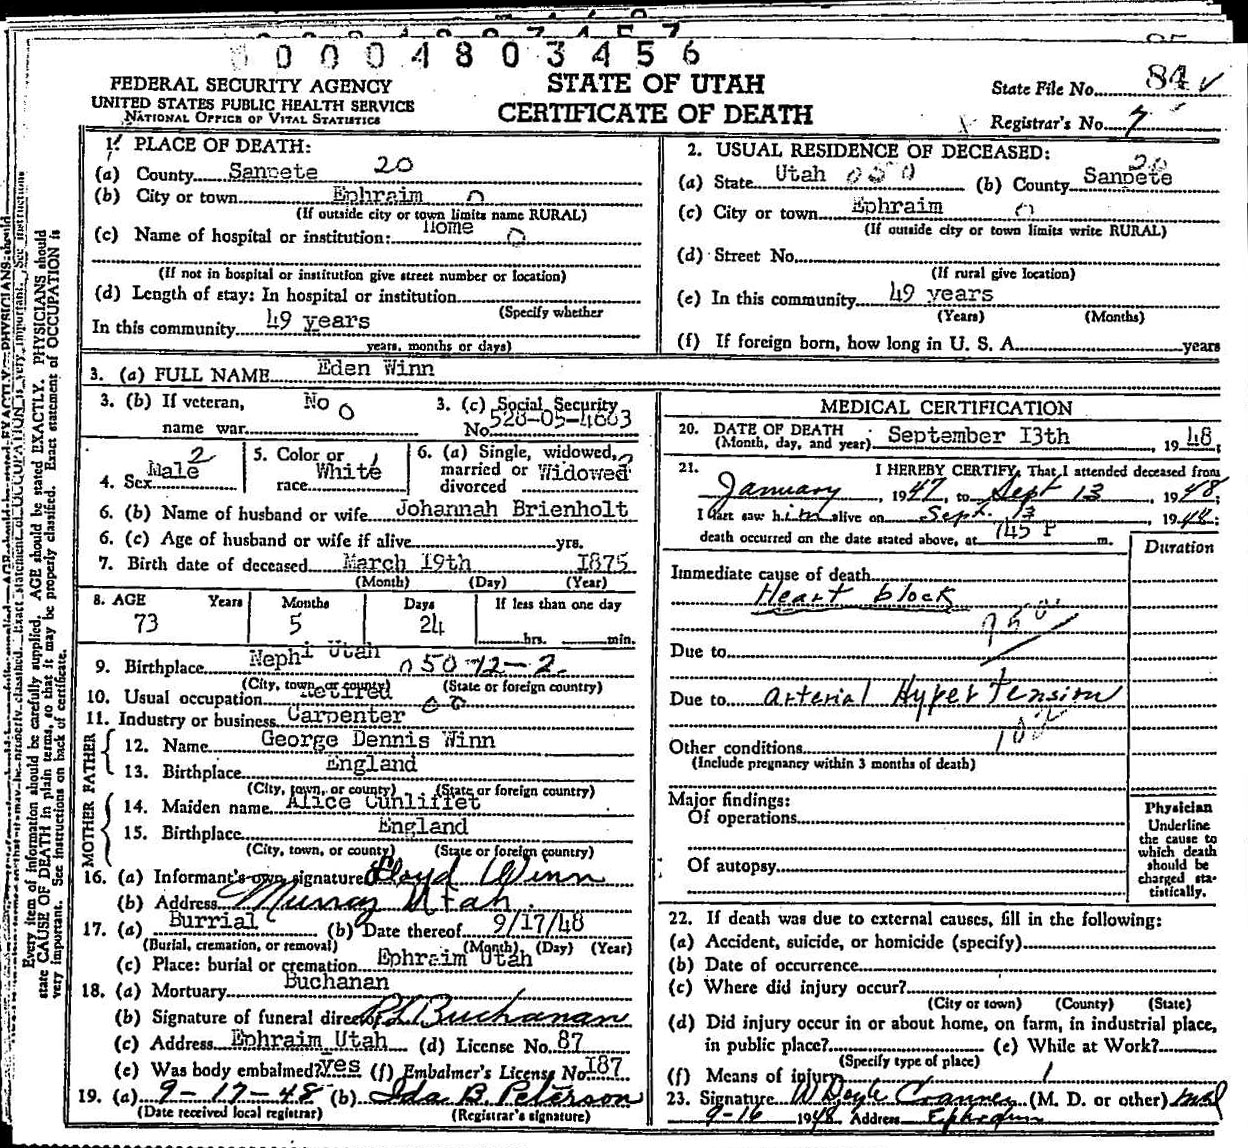 0000480 3456
FEDERAL SECURITY AGENCY
UNITED STATES PUBLIC HEALTH SERVICE
NATIONAL OFFICE OF VITAL STATISTICS
STATE OF UTAH
CERTIFICATE OF DEATH
State File No. 84
Registrar's No. 7
1. PLACE OF DEATH:
(a) County Sanpete 20
(b) City or town Ephraim 0
(If outside city or town limits name RURAL)
(c) Name of hospital or institution: Home 0
(If not in hospital or institution give street number or location)
(d) Length of stay: In hospital or institution
(Specify whether
In this community 49 years
years, months or days)
2. USUAL RESIDENCE OF DECEASED:
(a) State Utah 050 (b) County Sanpete 20
(c) City or town Ephraim 0
(If outside city or town limits write RURAL)
(d) Street No.
(If rural give location)
(e) In this community 49 years
(Years) (Months)
(f) If foreign born, how long in U. S. A. years
3. (a) FULL NAME Eden Winn
3. (b) If veteran, name war No 0
3. (c) Social Security No. 528-05-4663
4. Sex Male 2
5. Color or race White 1
6. (a) Single, widowed, married or divorced Widowed
6. (b) Name of husband or wife Johannah Brienholt
6. (c) Age of husband or wife if alive yrs.
7. Birth date of deceased March 19th 1875
(Month) (Day) (Year)
8. AGE Years Months Days If less than one day
73 5 24 hrs. min.
9. Birthplace Nephi Utah 050 12-2
(City, town, or county) (State or foreign country)
10. Usual occupation Retired 00
11. Industry or business Carpenter
FATHER
12. Name George Dennis Winn
13. Birthplace England
(City, town, or county) (State or foreign country)
MOTHER
14. Maiden name Alice Cunliffet
15. Birthplace England
(City, town, or county) (State or foreign country)
16. (a) Informant's own signature Lloyd Winn
(b) Address Murray Utah.
17. (a) Burrial (b) Date thereof 9/17/48
(Burial, cremation, or removal) (Month) (Day) (Year)
(c) Place: burial or cremation Ephraim Utah
18. (a) Mortuary Buchanan
(b) Signature of funeral director Buchanan
(c) Address Ephraim Utah (d) License No. 87
(e) Was body embalmed? Yes (f) Embalmer's License No. 187
19. (a) 9-17-48 (b) Ida B. Peterson
(Date received local registrar) (Registrar's signature)
MEDICAL CERTIFICATION
20. DATE OF DEATH
(Month, day, and year) September 13th 1948;
21. I HEREBY CERTIFY, That I attended deceased from
January, 1947, to Sept 13, 1948;
I last saw him alive on Sept. 13 1948;
death occurred on the date stated above, at 745 P m.
Duration
Immediate cause of death
Heart block
Due to
Due to arterial Hypertension
Other conditions
(Include pregnancy within 3 months of death)
Major findings:
Of operations
Of autopsy
Physician
Underline
the cause to
which death
should be
charged sta-
tistically.
22. If death was due to external causes, fill in the following:
(a) Accident, suicide, or homicide (specify)
(b) Date of occurrence
(c) Where did injury occur?
(City or town) (County) (State)
(d) Did injury occur in or about home, on farm, in industrial place,
in public place? (e) While at Work?
(Specify type of place)
(f) Means of injury
23. Signature W Doyle Cranney (M. D. or other)
9-16 1948 Address Ephraim
Every item of information should be carefully supplied. AGE should be stated EXACTLY. PHYSICIANS should
state CAUSE OF DEATH in plain terms, so that it may be properly classified. Exact statement of OCCUPATION is
very important. See instructions on back of certificate.